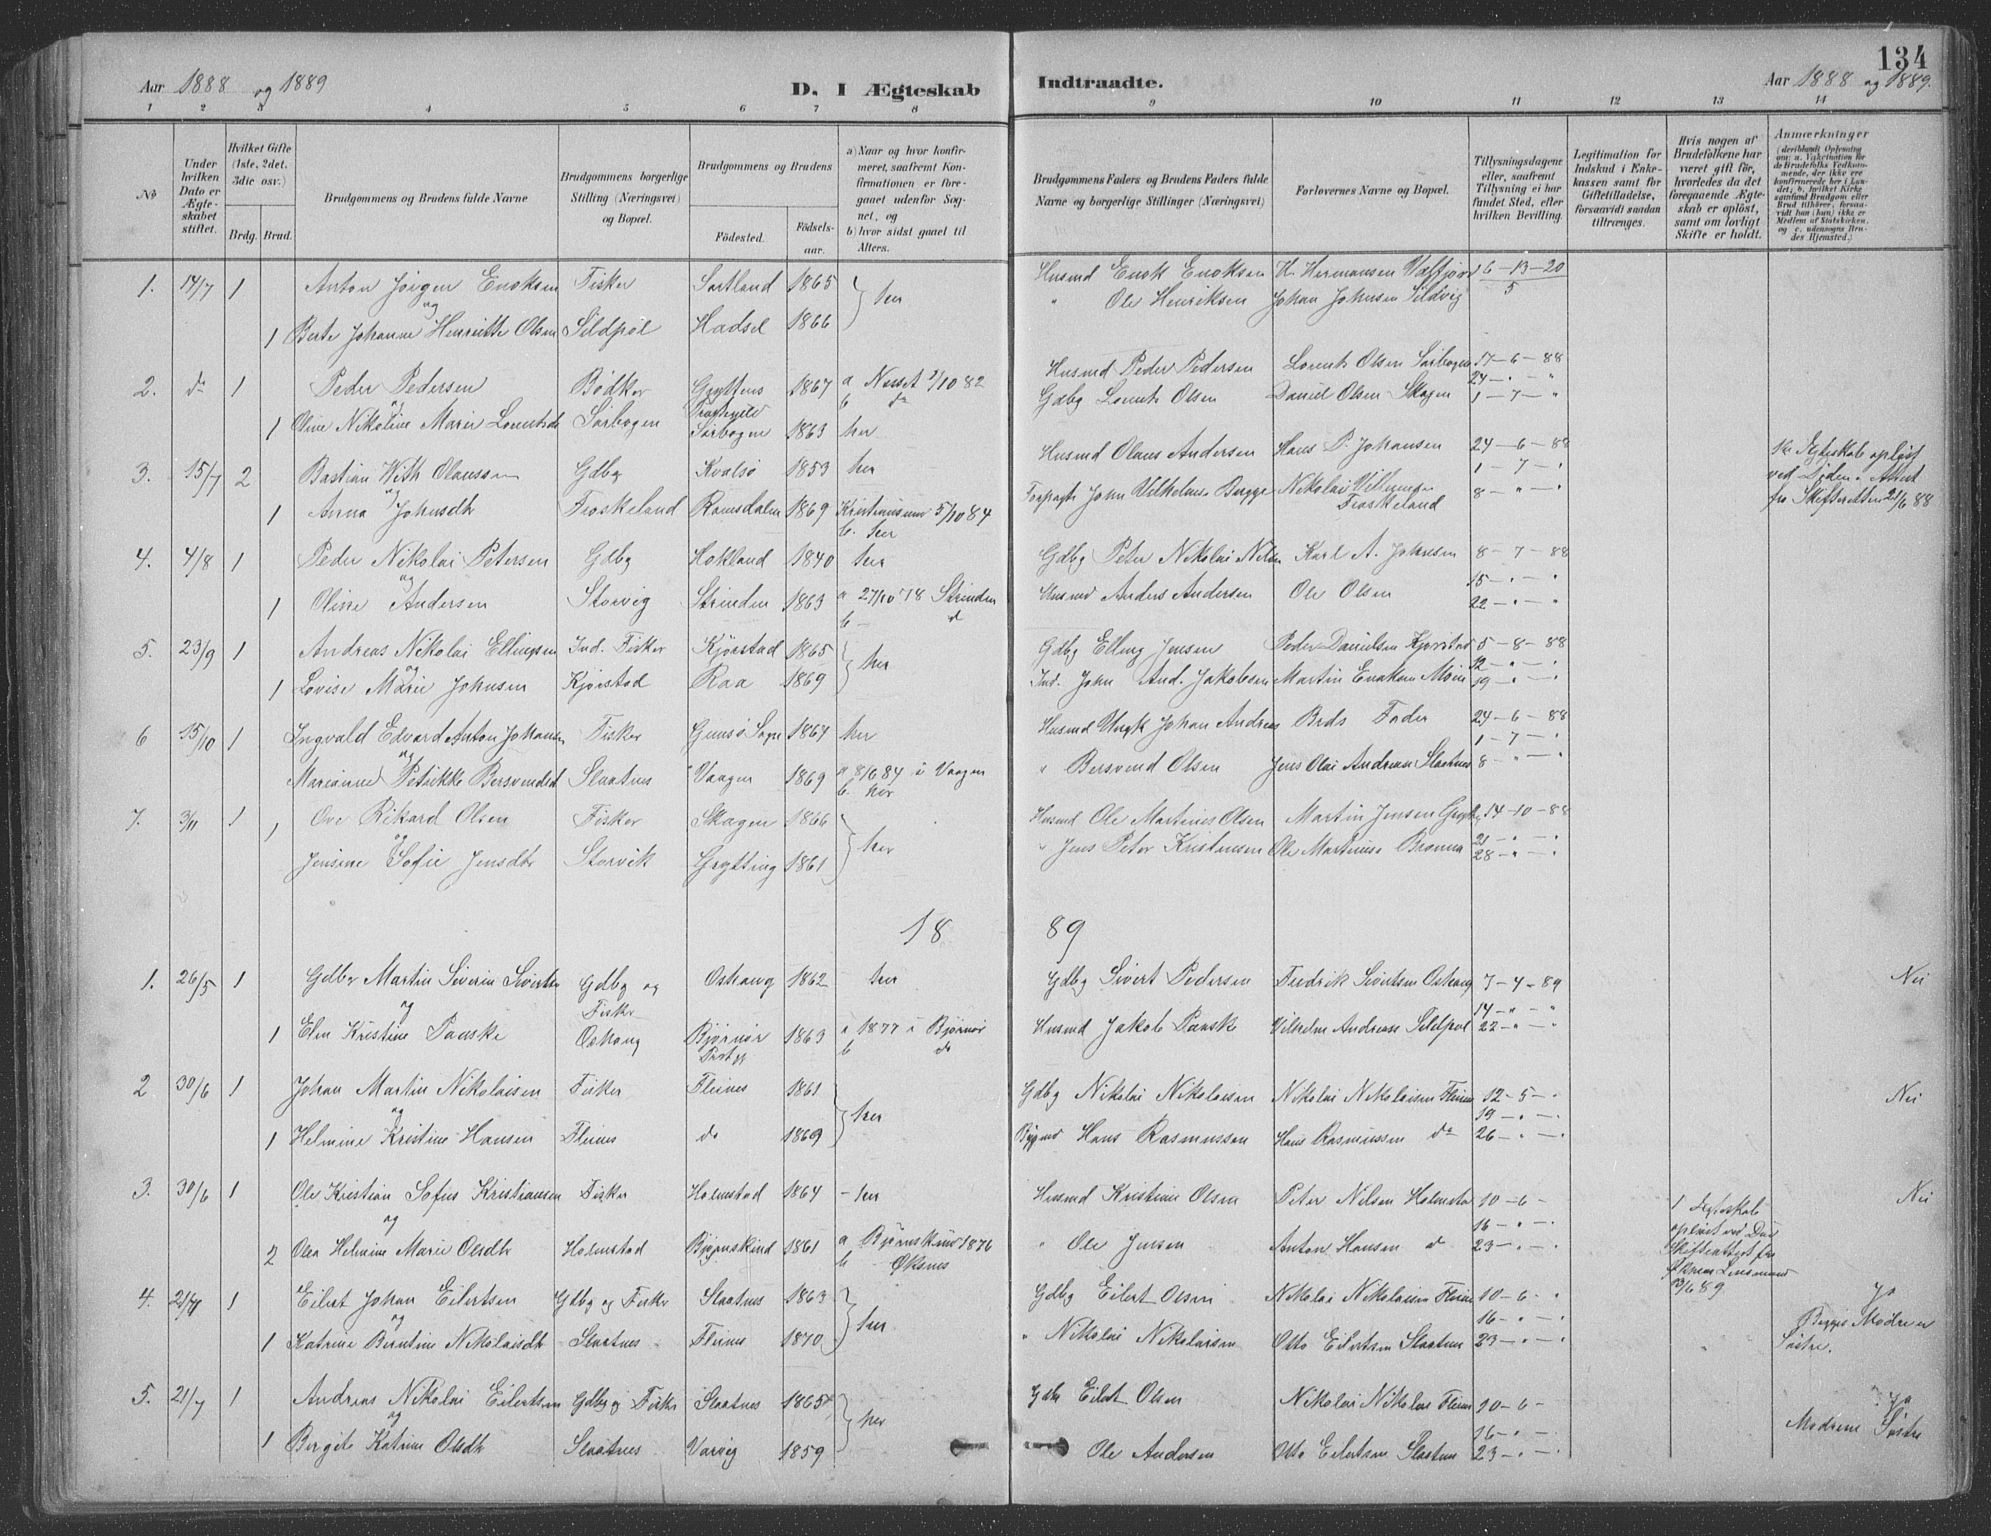 134
Aar 1888 og 1889
D. I Ægteskab Indtraadte.
Aar 1888 og 1889.
1 2 3 4 5 6 7 8 9 10 11 12 13 14
No
Under hvilken Dato er Ægteskabet stiftet.
Hvilket Gifte (1ste, 2det, 3die osv.)
Brdg. Brud.
Brudgommens og Brudens fulde Navne
Brudgommens borgerlige Stilling (Næringsvei) og Bopæl.
Brudgommens og Brudens
Fødested. Fødselsaar.
a) Naar og hvor konfirmeret, saafremt Konfirmationen er foregaaet udenfor Sognet, og
b) hvor sidst gaaet til Alters.
Brudgommens Faders og Brudens Faders fulde Navne og borgerlige Stillinger (Næringsvei)
Forlovernes Navne og Bopæl.
Tillysningsdagene eller, saafremt Tillysning ei har fundet Sted, efter hvilken Bevilling.
Legitimation for Indskud i Enkekassen samt for Giftetilladelse, forsaavidt saadan tiltrænges.
Hvis nogen af Brudefolkene har været gift før, hvorledes da det foregaaende Ægteskab er opløst, samt om lovligt Skifte er holdt.
Anmærkninger
(deriblandt Oplysning om: a. Vakcination for de Brudefolks Vedkommende, der ikke ere konfirmerede her i Landet; b. hvilket Kirkesamfund Brudgom eller Brud tilhører, forsaavidt han (hun) ikke er Medlem af Statskirken, og c. udensogns Brudes Hjemsted.)
1. 14/7 1 Anton Jørgen Enoksen Fisker Sortland 1865 her Husmd Enok Enoksen H. Hermansen 6-13-20
og " Ole Henriksen Johan Johnsen Sildvig 5
1 Berte Johanne Henriette Olsen Sildpol Hadsel 1866
2. do 1 Peder Pedersen Bødker Gryttens 1867 a Nesset 1/10 82 Husmd Peder Pedersen Lorents Olsen Sørbogen 17-6-88
og Præstegjeld b do Gdbg Lorents Olsen Daniel Olsen Skagen 24 - " - "
1 Oline Nikoline Marie Lorentsdr Sørbogen Sørbogen 1863 her 1-7-"
3. 15/7 2 Bastian With Olaussen Gdbg Kvalsø 1853 her Husmd Olaus Andersen Hans P. Johansen 24-6-88 1ste Ægteskab opløst
og 1-7-" ved Døden. Attest
1 Anna Johnsdtr Froskeland Romsdalen 1869 Kristiansund 5/10 84 John Vilhelmsen Bugge Nikolai 8-"-" fra Skifteretten 21/6 88
b. her Froskeland
4. 4/8 1 Peder Nikolai Petersen Gdbg Hokland 1840 her Gdbg Peter Nikolai Karl A. Johnsen 8-7-88
og 15-"-"
1 Oline Andersen Storvig Strinden 1863 a 27/10 78 Strinden Husmd Anders Andersen Ole Olsen 22-"-"
b - do
5. 23/9 1 Andreas Nikolai Ellingsen Ind. Fisker Kjørstad 1865 her Gdbg Elling Jensen Peder Danielsen Kjørstad 5-8-88
og 12-"-"
1 Lovise Marie Johnsen Kjørstad Raa 1869 Ind. John And. Jakobsen Martin 19-"-"
6 15/10 1 Ingvald Edvard Anton Johansen Fisker Gimsø Sogn 1867 her Husmd Johan Andreas Brds Fader 24-6-88
og 1-7-"
Marianne Petrikke Bersvendsd Slaatnes Vaagen 1869 a 8/10 84 i Vaagen " Bersvend Olsen Jens Olai Andreas Slaatnes 8-"-"
b. her
7. 3/11 1 1 Ove Rikard Olsen Fisker Skagen 1866 her Husmd Ole Martines Olsen Martin Jensen 14-10-88
og 21-"-"
Jensine Sofie Jensdtr Storvik Grytting 1861 " Jens Peter Kristensen Ole Martinus 28-"-"
18 89
1. 26/5 1 Gdbr Martin Siverin Sivertsen Gdbg og Oshaug 1862 her Gdbg Sivert Pedersen Fredrik Sivertsen Oshaug 7-4-89 Nei
og Fisker 14-"-"
1 Elen Kristine Panske Oshaug Bjørnør 1863 a 1877 i Bjørnør Husmd Jakob Pansk Vilhelm Andreas Sildpol 22-"-"
b do
2 30/6 1 Johan Martin Nikolaisen Fisker Fleines 1861 her Gdbg Nikolai Nikolaisen Nikolai Nikolaisen Fleines 12-5-" Nei
og 19-"-"
1 Helmine Kristine Hansen Fleines do 1869 Hans Rasmussen Hans Rasmussen do 26-"-"
3. 30/6 1 Ole Kristian Sofus Kristiansen Fisker Holmstad 1864 - her Husmd Kristine Olsen Peter Nilsen Holmstad 10-6- 1 Ægteskab Nei
og 16-"-"
2 Olea Helmine Marie Olsdtr Holmstad Bjørnskind 1861 a Bjørnskind 1876 " Ole Jensen Anton Hansen do 23-"-"
b Øksnes 13/6 89
4. 21/7 1 Eilert Johan Eilertsen Gdbg og Fisker Slaatnes 1863 her Gdbg Eilert Olsen Nikolai Nikolaisen Fleines 10-6-" Ja
og 16-"-" Begges Mødre er
1 Katrine Berntine Nikolaisdtr Slaatnes Fleines 1870 " Nikolai Nikolaisen Otto Eilertsen Slaatnes 23-"-" Søstre.
5. 21/7 1 Andreas Nikolai Eilertsen Gdbg og Fisker Slaatnes 1865 her Gdbr Eilert Olsen Nikolai Nikolais Fleines 10-6- Ja
og 16-"- Mødrene Søstre
1 Bergite Katrine Olsdtr Slaatnes Varvig 1859 Ole Andersen Otto Eilertsen Slaatnes 23-"-"